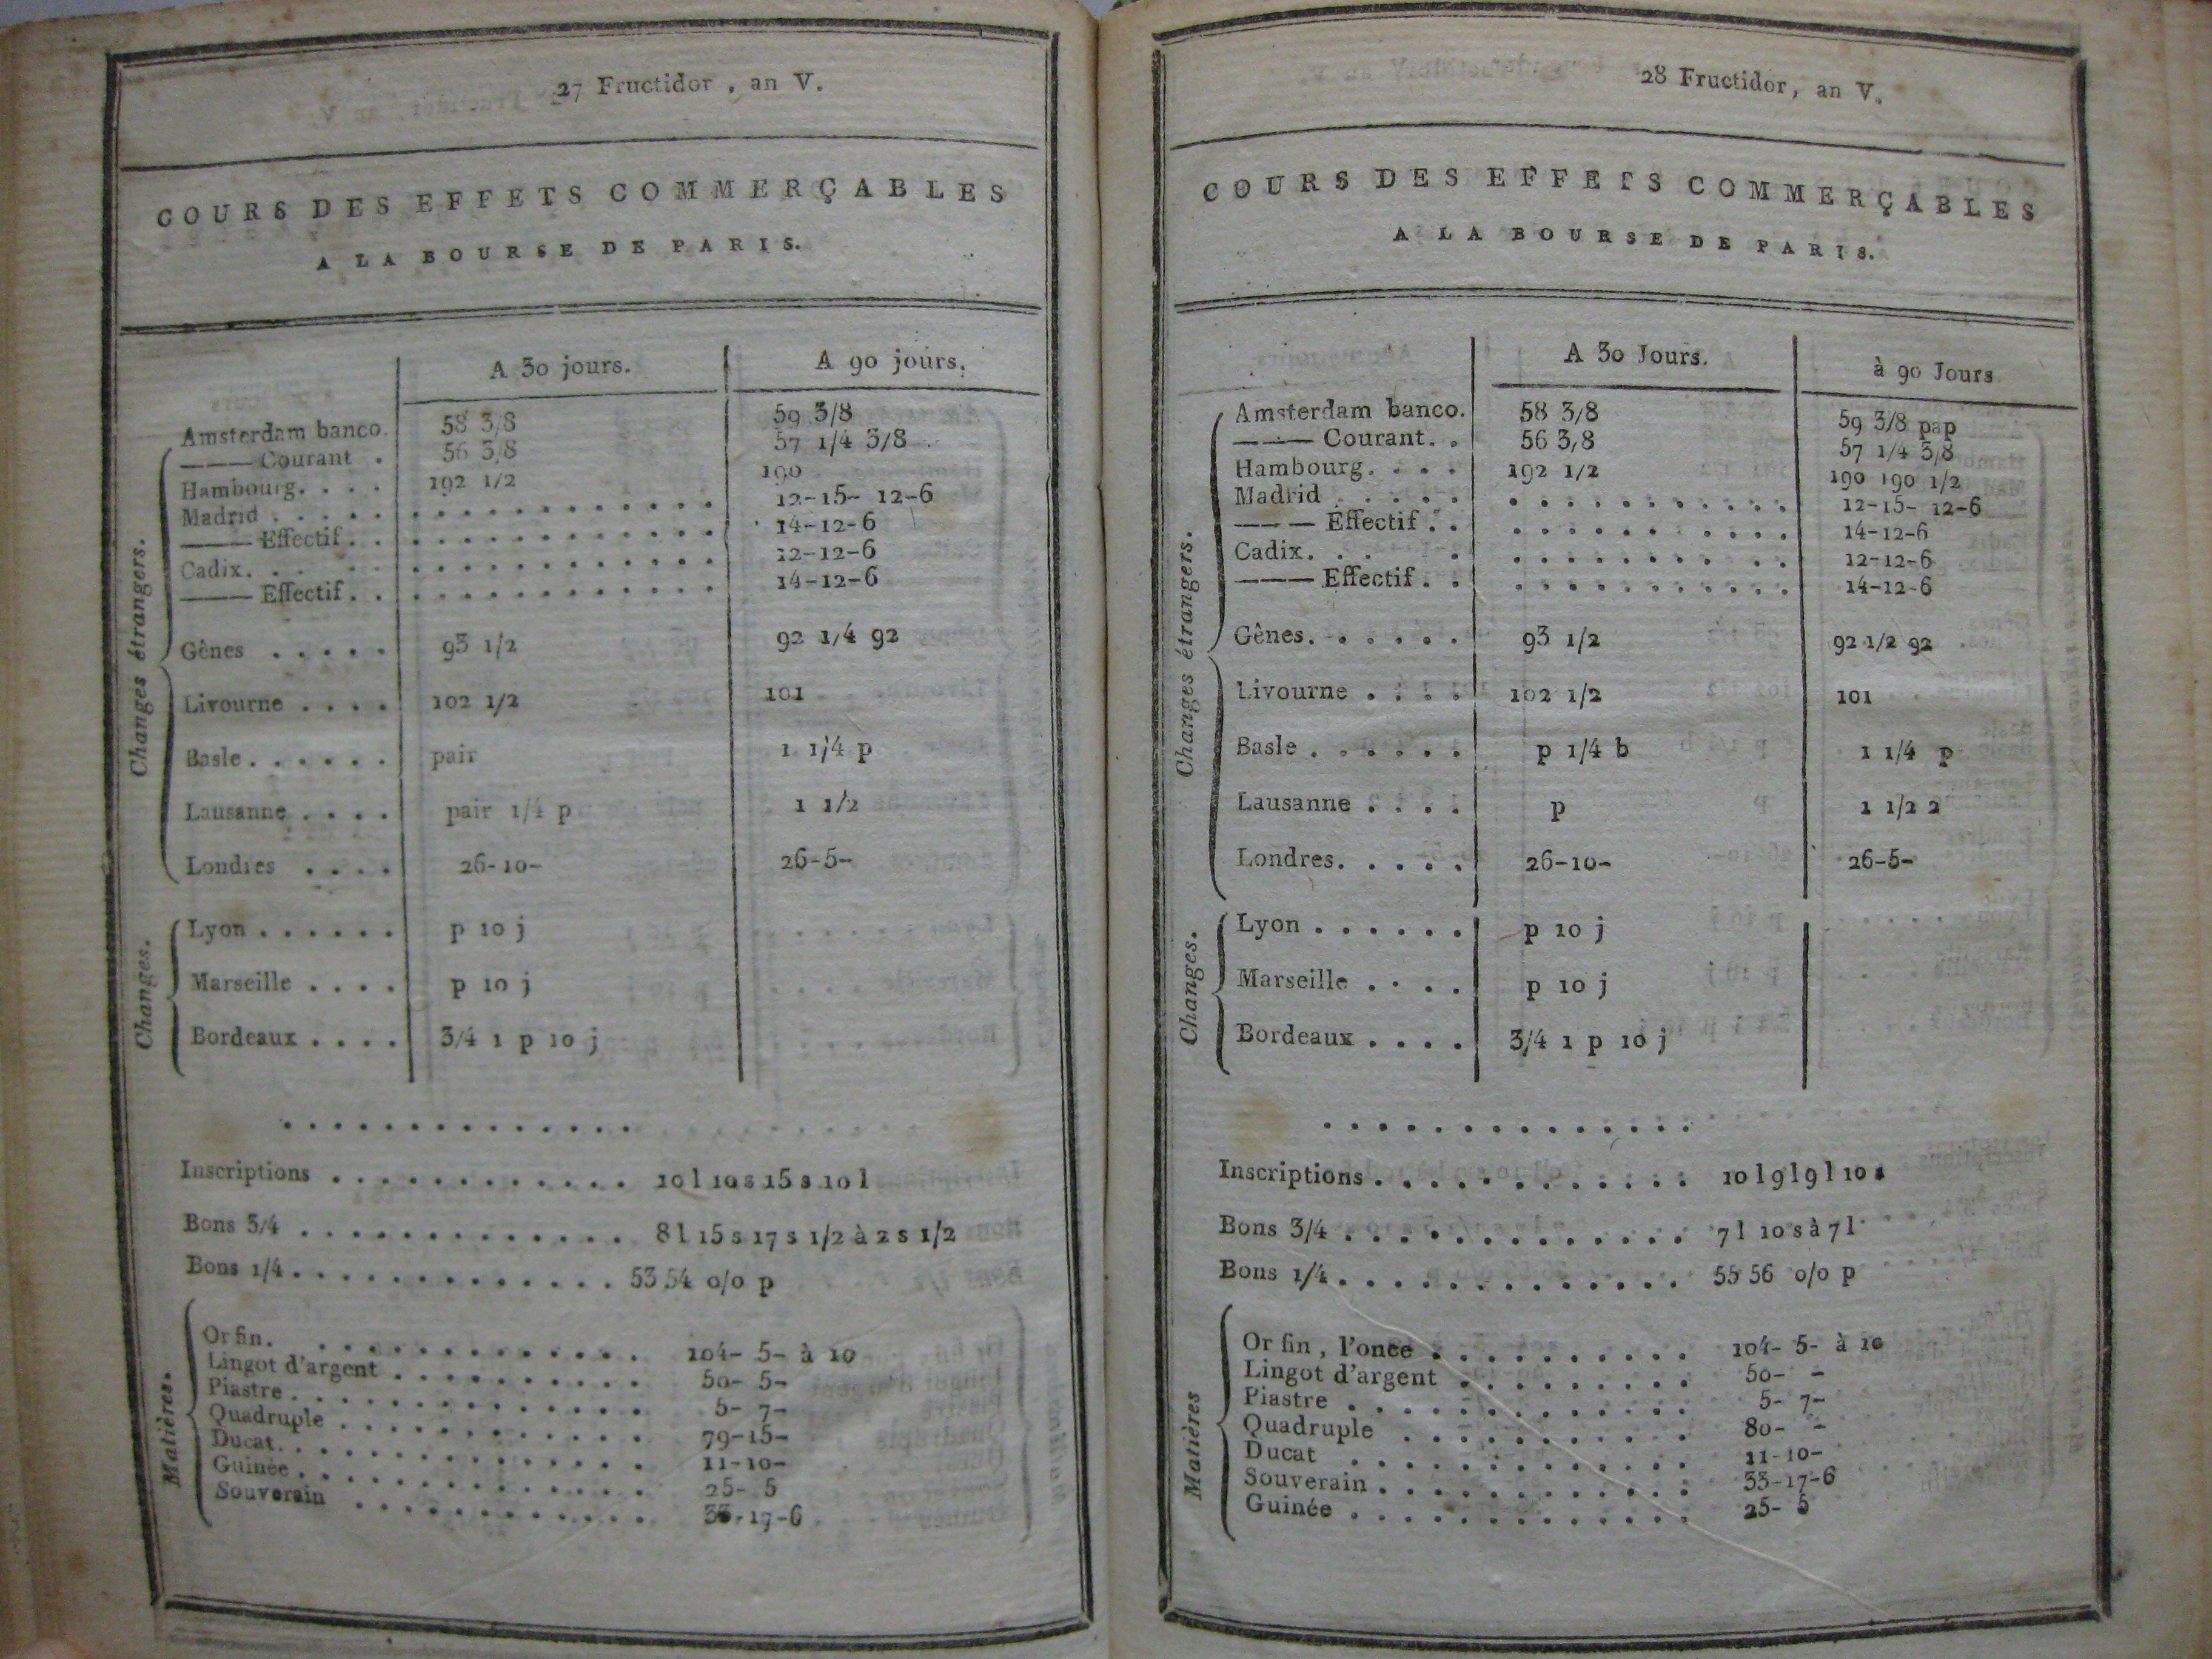 27 Fructidor, an V.
COURS DES EFFETS COMMERÇABLES
A LA BOURSE DE PARIS.
A 30 jours. A 90 jours.
Changes étrangers.
Amsterdam banco. 58 3/8 59 3/8
——— Courant . 56 3/8 57 1/4 3/8
Hambourg. . . . 192 1/2 190
Madrid . . . . . . . . . . . . . . . . 12-15- 12-6
——— Effectif. . . . . . . . . . . . . . 14-12-6
Cadix. . . . . . . . . . . . . . . . 12-12-6
——— Effectif. . . . . . . . . . . . . . 14-12-6
Gênes . . . . . 93 1/2 92 1/4 92
Livourne . . . . 102 1/2 101
Basle . . . . . . pair 1 1/4 p
Lausanne . . . . pair 1/4 p 1 1/2
Londres . . . . 26-10- 26-5-
Changes.
Lyon . . . . . . p 10 j
Marseille . . . . p 10 j
Bordeaux . . . . 3/4 1 p 10 j
. . . . . . . . . . . . . .
Inscriptions . . . . . . . . . . . . 10 l 10 s 15 s 10 l
Bons 3/4 . . . . . . . . . . . . . 8 l 15 s 17 s 1/2 à 2 s 1/2
Bons 1/4 . . . . . . . . . . . . . 53 54 o/o p
Matières.
Or fin. . . . . . . . . . . . . . 104- 5- à 10
Lingot d'argent . . . . . . . . . . 50- 5-
Piastre . . . . . . . . . . . . . 5- 7-
Quadruple . . . . . . . . . . . 79-15-
Ducat. . . . . . . . . . . . . . 11-10-
Guinée . . . . . . . . . . . . . 25- 5
Souverain . . . . . . . . . . . 33-17-6
28 Fructidor, an V.
COURS DES EFFETS COMMERÇABLES
A LA BOURSE DE PARIS.
A 30 Jours. à 90 Jours
Changes étrangers.
Amsterdam banco. 58 3/8 59 3/8 pap
——— Courant. . 56 3/8 57 1/4 3/8
Hambourg. . . . 192 1/2 190 190 1/2
Madrid . . . . . . . . . . . . . . . . 12-15- 12-6
——— Effectif . . . . . . . . . . . . . 14-12-6
Cadix. . . . . . . . . . . . . . 12-12-6
——— Effectif . . . . . . . . . . . . . 14-12-6
Gênes. . . . . . 93 1/2 92 1/2 92
Livourne . . . . 102 1/2 101
Basle . . . . . . p 1/4 b 1 1/4 p
Lausanne . . . . p 1 1/2 2
Londres. . . . . 26-10- 26-5-
Changes.
Lyon . . . . . . p 10 j
Marseille . . . . p 10 j
Bordeaux . . . . 3/4 1 p 10 j
. . . . . . . . . . . . . .
Inscriptions . . . . . . . . . . . . 10 l 9 l 9 l 10 s
Bons 3/4 . . . . . . . . . . . . . 7 l 10 s à 7 l
Bons 1/4 . . . . . . . . . . . . . 55 56 o/o p
Matières
Or fin, l'once . . . . . . . . . . 104- 5- à 10
Lingot d'argent . . . . . . . . . 50- -
Piastre . . . . . . . . . . . . . 5- 7-
Quadruple . . . . . . . . . . . 80- -
Ducat . . . . . . . . . . . . . 11-10-
Souverain . . . . . . . . . . . . 33-17-6
Guinée . . . . . . . . . . . . . 25- 5